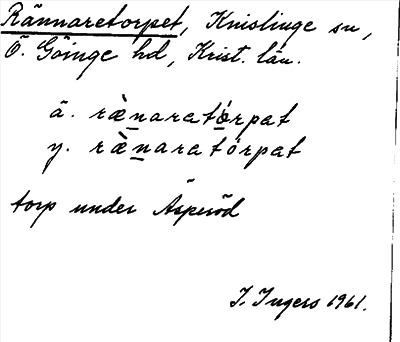 Rännaretorpet, Knislinge sn,
Ö. Göinge hd, Krist. län.
ä. ræ̀narató̱rpat
y. ræ̀ṉaratórpat
torp under Äsperöd
I. Ingers 1961.